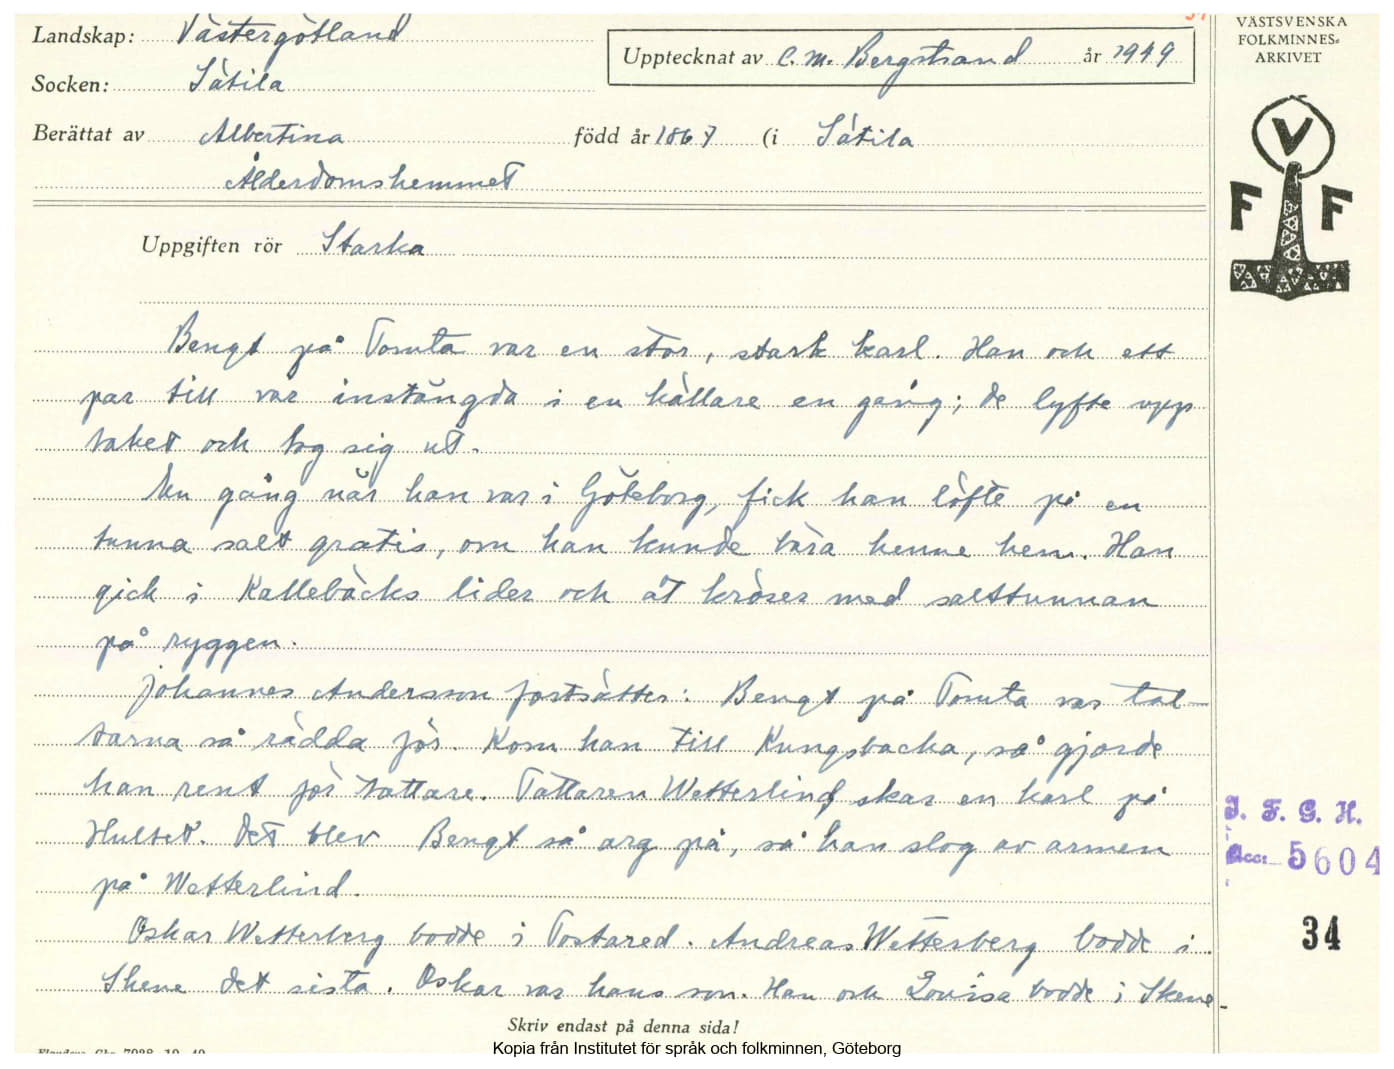 Landskap: Västergötland
Upptecknat av C. M. Bergstrand år 1949
Socken: Sätila
Berättat av Albertina född år 1867 (i Sätila
Ålderdomshemmet
VÄSTSVENSKA
FOLKMINNES-
ARKIVET
V
F F
Uppgiften rör Starka
Bengt på Tomta var en stor, stark karl. Han och ett
par till var instängda i en källare en gång; de lyfte upp
taket och tog sig ut.
En gång när han var i Göteborg, fick han löfte på en
tunna salt gratis, om han kunde bära henne hem. Han
gick i Kallebäcks lider och åt kröser med salttunnan
på ryggen.
Johannes Andersson fortsätter: Bengt på Tomta var tat-
tarna så rädda för. Kom han till Kungsbacka, så gjorde
han rent för tattare. Tattaren Wetterlind skar en karl på
Hultet. Det blev Bengt så arg på, så han slog av armen
på Wetterlind.
Oskar Wetterberg bodde i Tostared. Andreas Wetterberg bodde i
Skene det sista. Oskar var hans son. Han och Lovisa bodde i Skene
I. F. G. H.
Acc: 5604
34
Skriv endast på denna sida!
Kopia från Institutet för språk och folkminnen, Göteborg